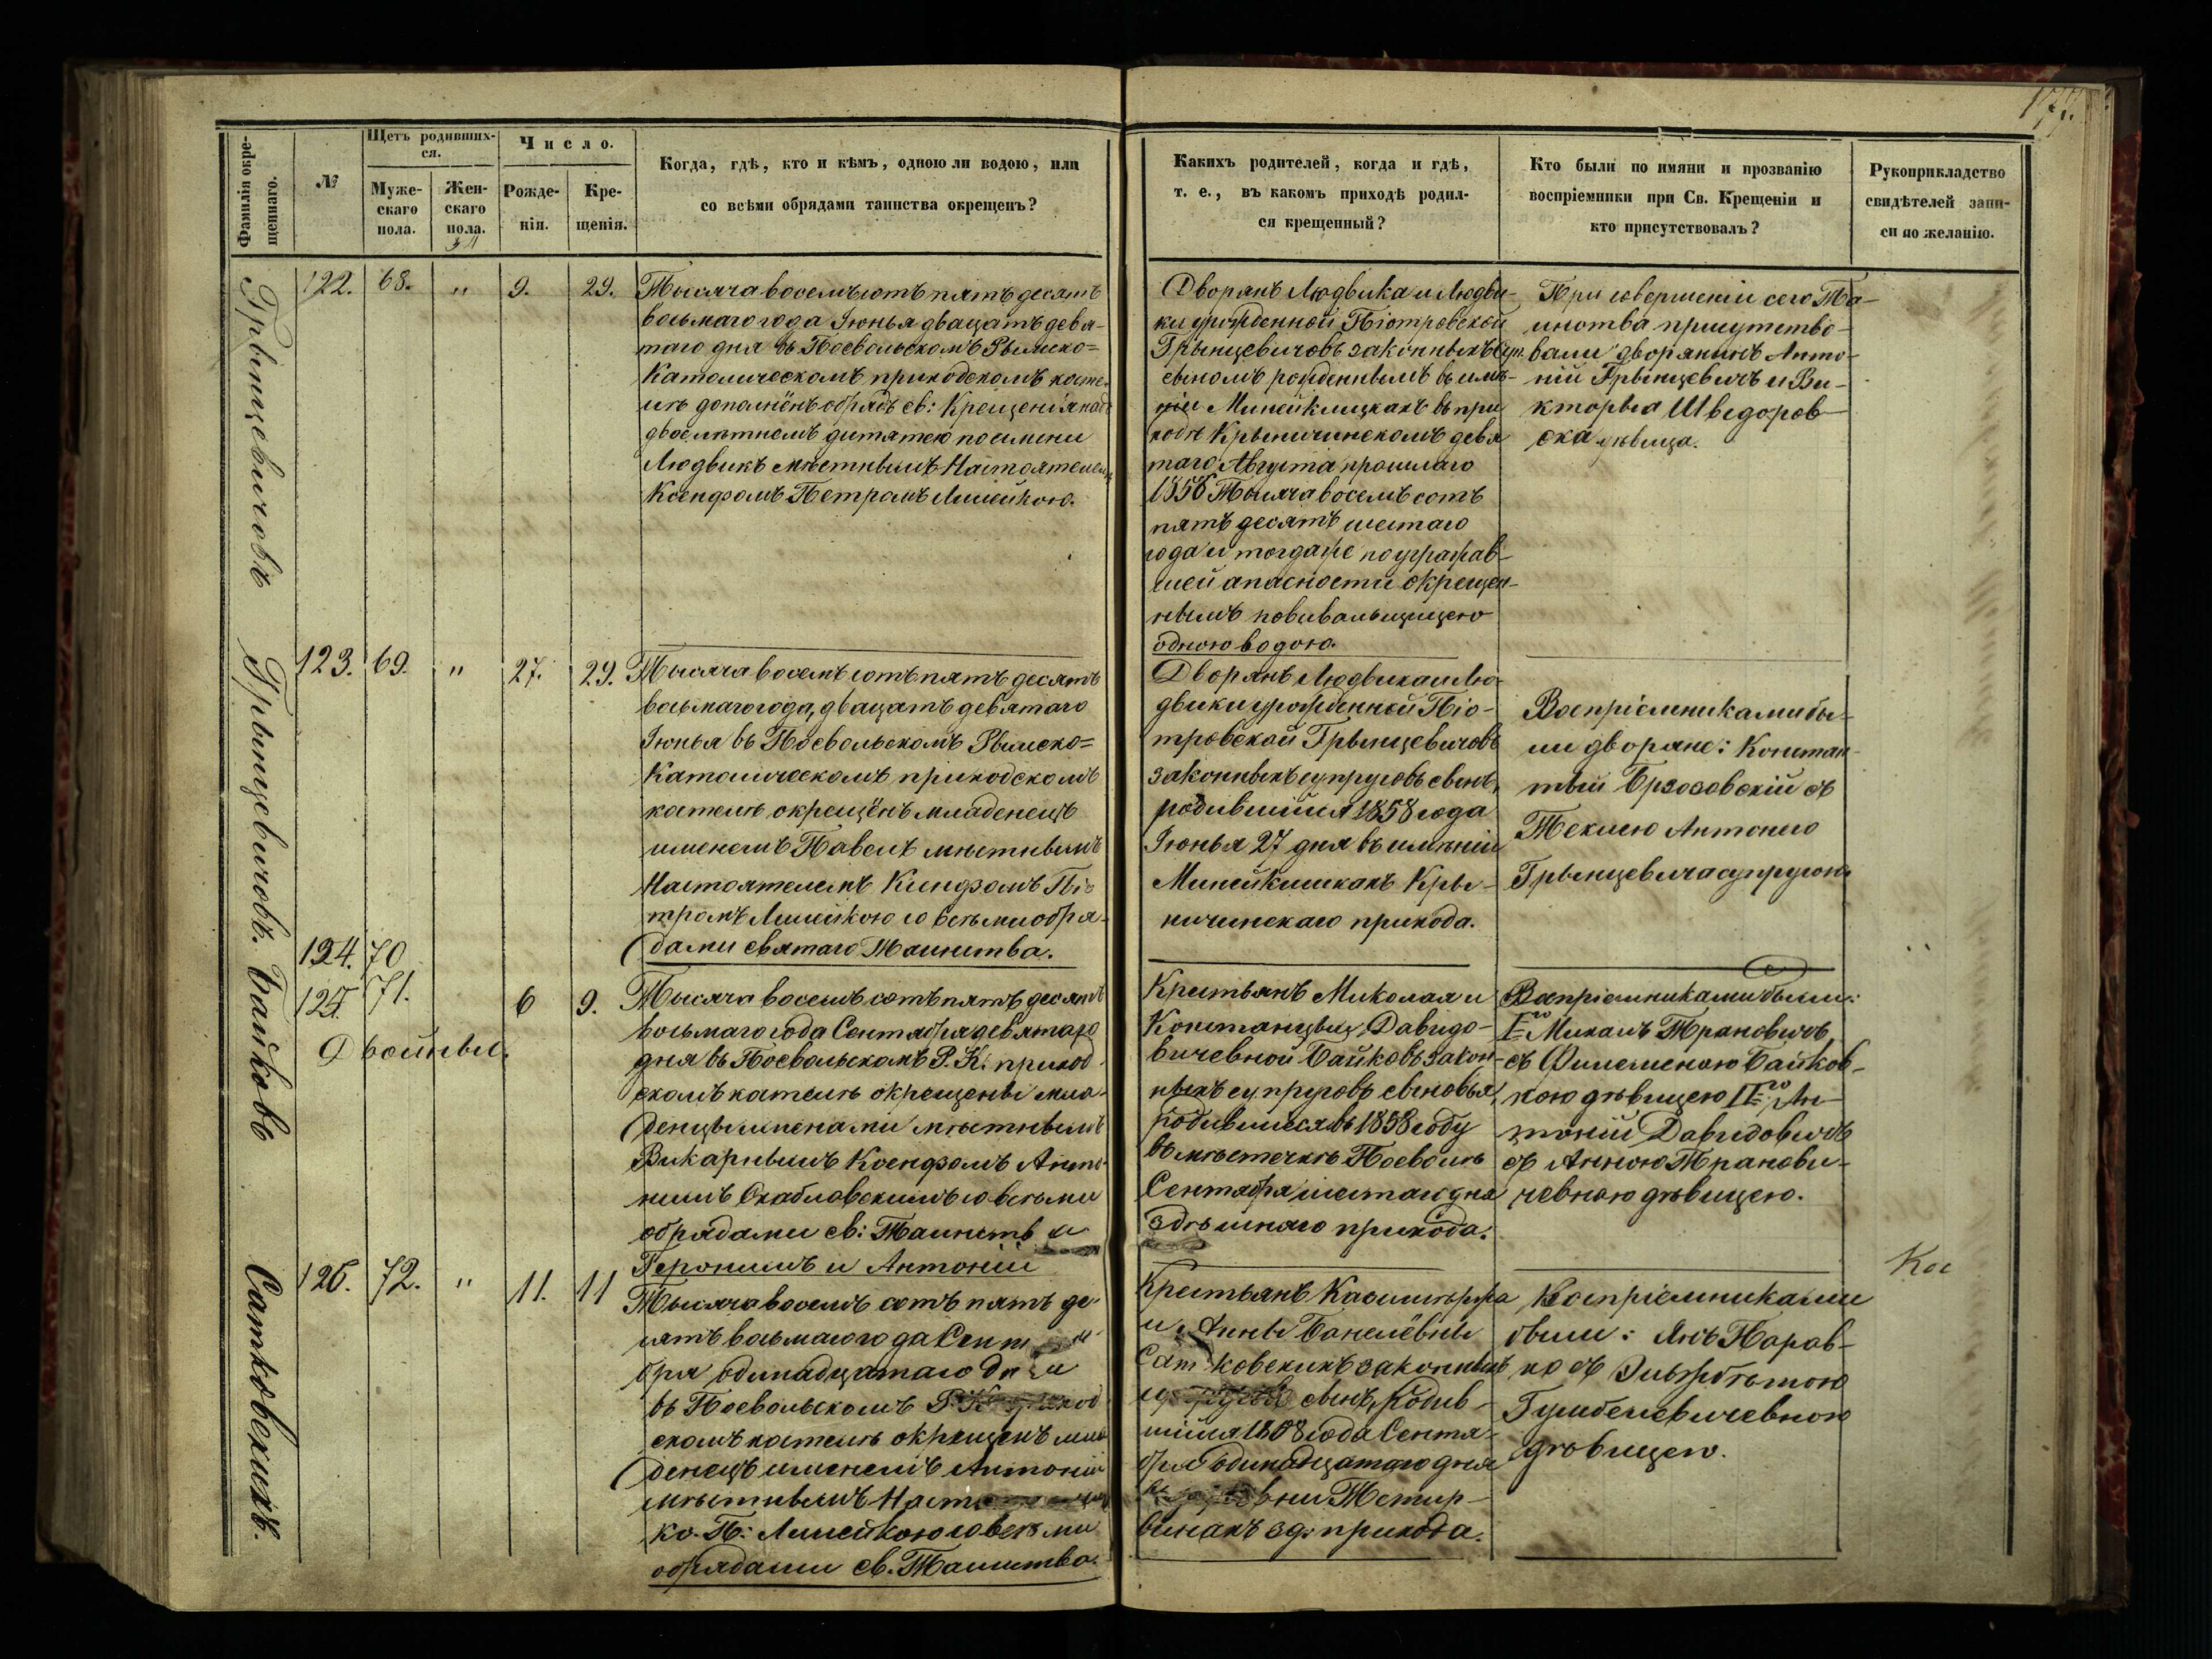 177.
Фамилія окре-
щеннаго.
№
Щетъ родивших-
ся.
Муже-
скаго
пола.
Жен-
скаго
пола.
34
Число.
Рожде-
нія.
Кре-
щенія.
Когда, гдѣ, кто и кѣмъ, одною ли водою, или
со всѣми обрядами таинства окрещенъ?
Какихъ родителей, когда и гдѣ,
т. е., въ какомъ приходѣ родил-
ся крещенный?
Кто были по имяни и прозванію
воспріемники при Св. Крещеніи и
кто присутствовалъ?
Рукоприкладство
свидѣтелей запи-
си по желанію.
Грынцевичовъ
122. 68. " 9. 29.
Тысяча восемъ сотъ пятъ десятъ
восьмаго года Іюнья двацатъ девя-
таго дня въ Поевольскомъ Рымско=
Католическомъ приходскомъ косте-
лѣ дополнёнъ обрядъ св: Крещенія надъ
двоелѣтнемъ дитятею по имени
Людвикъ мѣстнымъ Настоятелемъ
Ксендзомъ Петромъ Лилейкою.
Дворянъ Людвика и Людви-
ки урожденной Піотровской
Грынцевичовъ законныхъ Суп.
сыномъ рожденнымъ въ имѣ-
ніи Минейкишкахъ въ при
ходѣ Крыничинскомъ девя
таго Августа прошлаго
1856 Тысяча восемъ сотъ
пятъ десятъ шестаго
года и тогда же по угрожав-
шей апасности окрещен-
нымъ повивальщицею
одною водою.
При совершеніи сего Та-
инства присутство-
вали дворянинъ Анто-
ній Грынцевичъ и Ви-
кторыя Шведоров-
ска дѣвица.
Грынцевичовъ.
123. 69. " 27. 29.
Тысяча восемъ сотъ пятъ десятъ
восьмаго года, двацатъ девятаго
Іюнья въ Поевольскомъ Рымско=
Католическомъ приходскомъ
кателѣ окрещёнъ младенецъ
именемъ Павелъ мѣстнымъ
Настоятелемъ Ксендзомъ Піо
тромъ Лилейкою со всѣми обря-
дами святаго Таинства.
Дворянъ Людвика и Лю-
двики урожденной Піо-
тровской Грынцевичовъ
законныхъ супруговъ сынъ,
родившійся 1858 года
Іюнья 27 дня въ имѣніи
Минейкишкахъ Кры-
ничинскаго прихода.
Воспріемниками бы-
ли дворяне: Констан-
тый Брзозовскій съ
Теклею Антонего
Грынцевича супругою.
Байковъ
124. 70
125. 71. 6 9.
Двойные.
Тысяча восемъ сотъ пятъ десятъ
восьмаго года Сентября девятаго
дня въ Поевольскомъ Р. К. приход
скомъ кателѣ окрещены мла-
денцы именами мѣстнымъ
Викарнымъ Ксендзомъ Анто-
нимъ Скабловскимъ со всѣми
обрядами св: Таинств и
Геронимъ и Антоній
Крестьянъ Миколая и
Констанцыи Давидо-
вичевной Байковъ закон-
ныхъ супруговъ сыновья,
родившіеся въ 1858 году
въ мѣстечкѣ Поеволѣ
Сентября шестаго дня
здѣшняго прихода.
Воспріемниками были:
Iго Михалъ Трановичъ
съ Филеменою Байков-
ною дѣвицею IIго Ан-
тоній Давидовичъ
съ Анною Транови-
чевною дѣвицею.
Сатковскихъ.
126. 72. " 11. 11
Тысяча восемъ сотъ пятъ де-
сятъ восьмаго года Сентя
бря одинадцатаго дня
въ Поевольскомъ Р. К. приход
скомъ кателѣ окрещенъ мла
денецъ именемъ Антоній
мѣстнымъ
кс. П: Лилейкою со всѣми
обрядами св. Таинства.
Крестьянъ Казимѣржа
и Анны Банелёвны
Сатковскихъ законныхъ
сынъ, родив-
шійся 1858 года Сентя-
бря одинадцатаго дня
въ Тетир-
винахъ зд: прихода.
Воспріемниками
были: Янъ Парав-
ко съ Эльжбѣтою
Гумбелевичевною
дѣвицею.
Кс